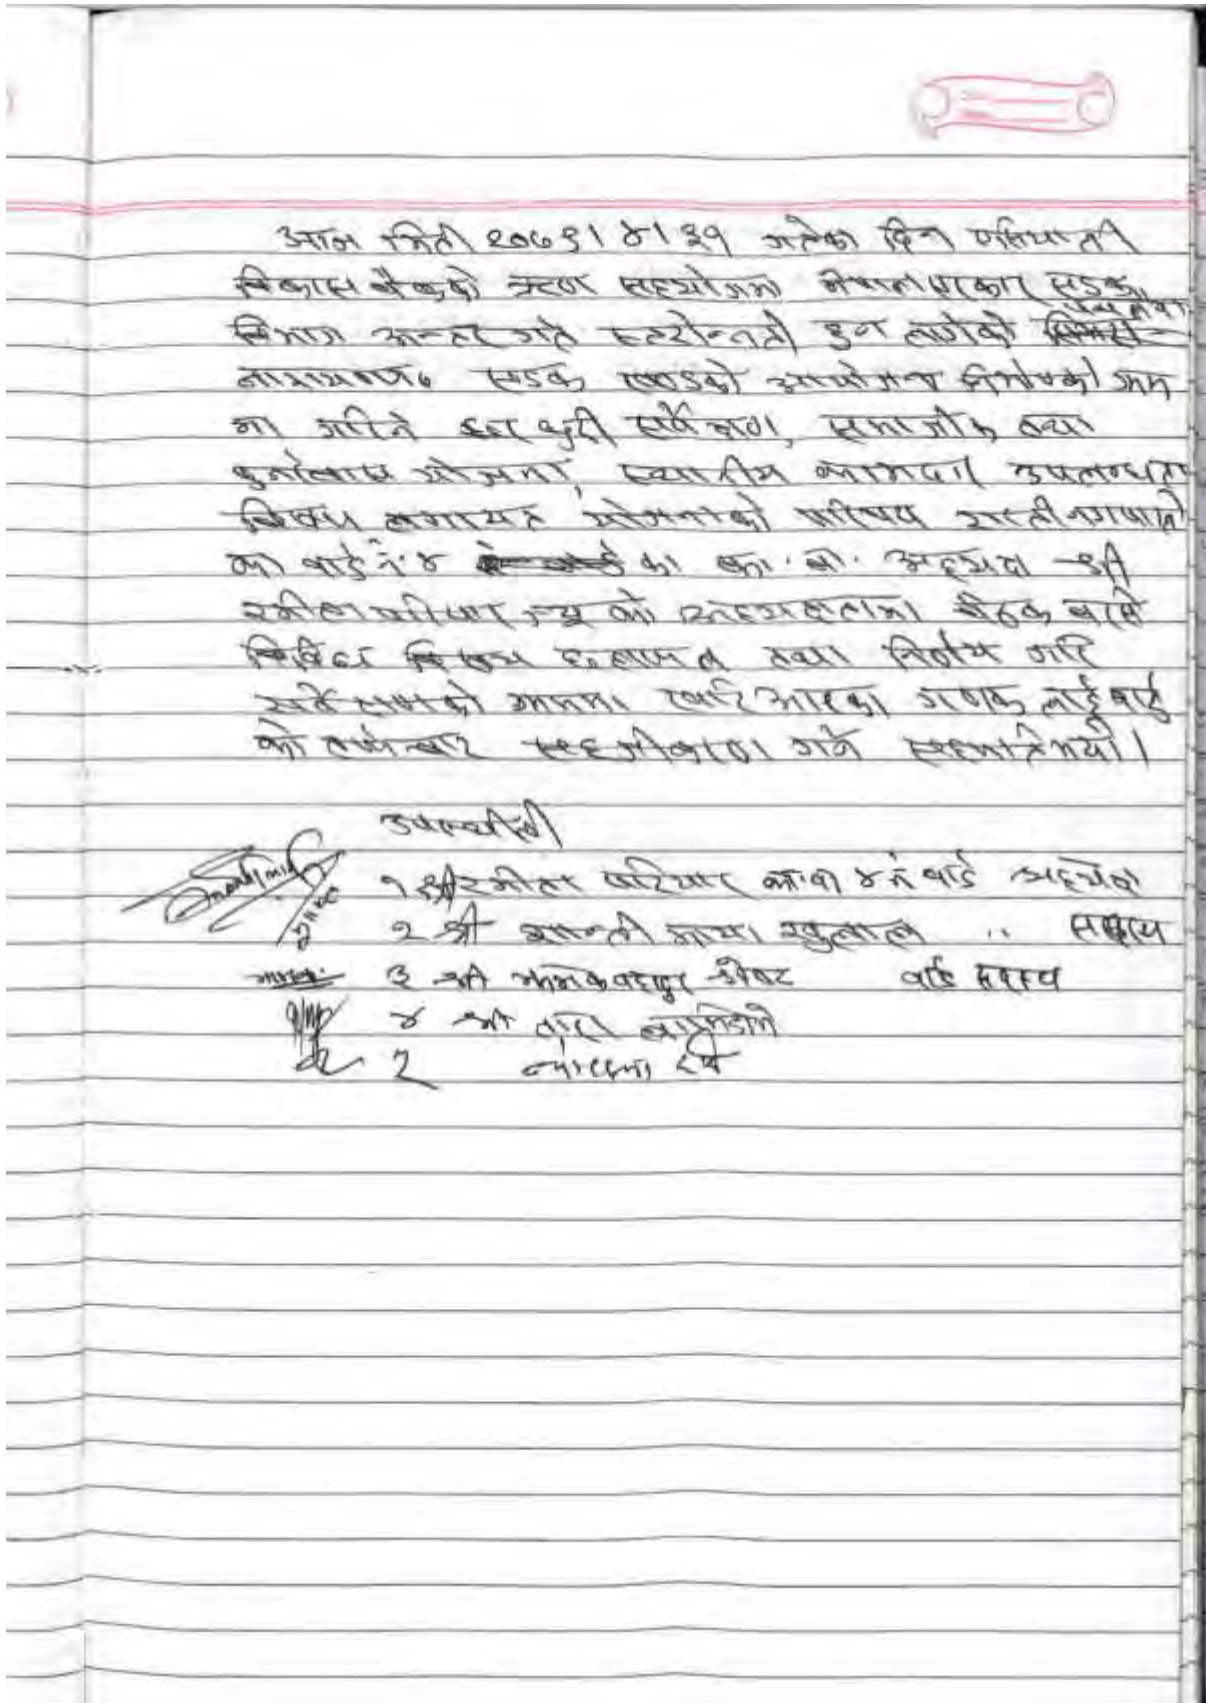 आज मिती २०७९।४।३१ गतेका दिन एसियाली
विकास बैंकको ऋण सहयोगमा नेपाल सरकार सडक
विभाग अन्तरगते स्तरोन्नती हुन लागेको
नारायणगढ सडक खण्डको आयोजना निर्माणको क्रम
मा गरीने घर धुरी सर्वेक्षण, समाजीक तथा
पुर्नवास योजना, स्थानीय कामदार उपलब्धता
विषय लगायत योजनाको परिचय
का वार्ड नं ४ का का. बा. अध्यक्ष श्री
रमीला परीयार ज्यू को अध्यक्षतामा बैठक बसी
विविध विषय छलफल तथा निर्णय गरि
सर्वेक्षणको क्रममा खटि आएका गणक लाई वार्ड
को तर्फबाट सहजीकरण गर्ने सहमति भयो।
उपस्थीती
१ श्री रमीला परियार का.बा ४ नं वार्ड अध्यक्ष
२ श्री शान्ती माया " सदस्य
३ श्री वार्ड सदस्य
४ श्री तारा